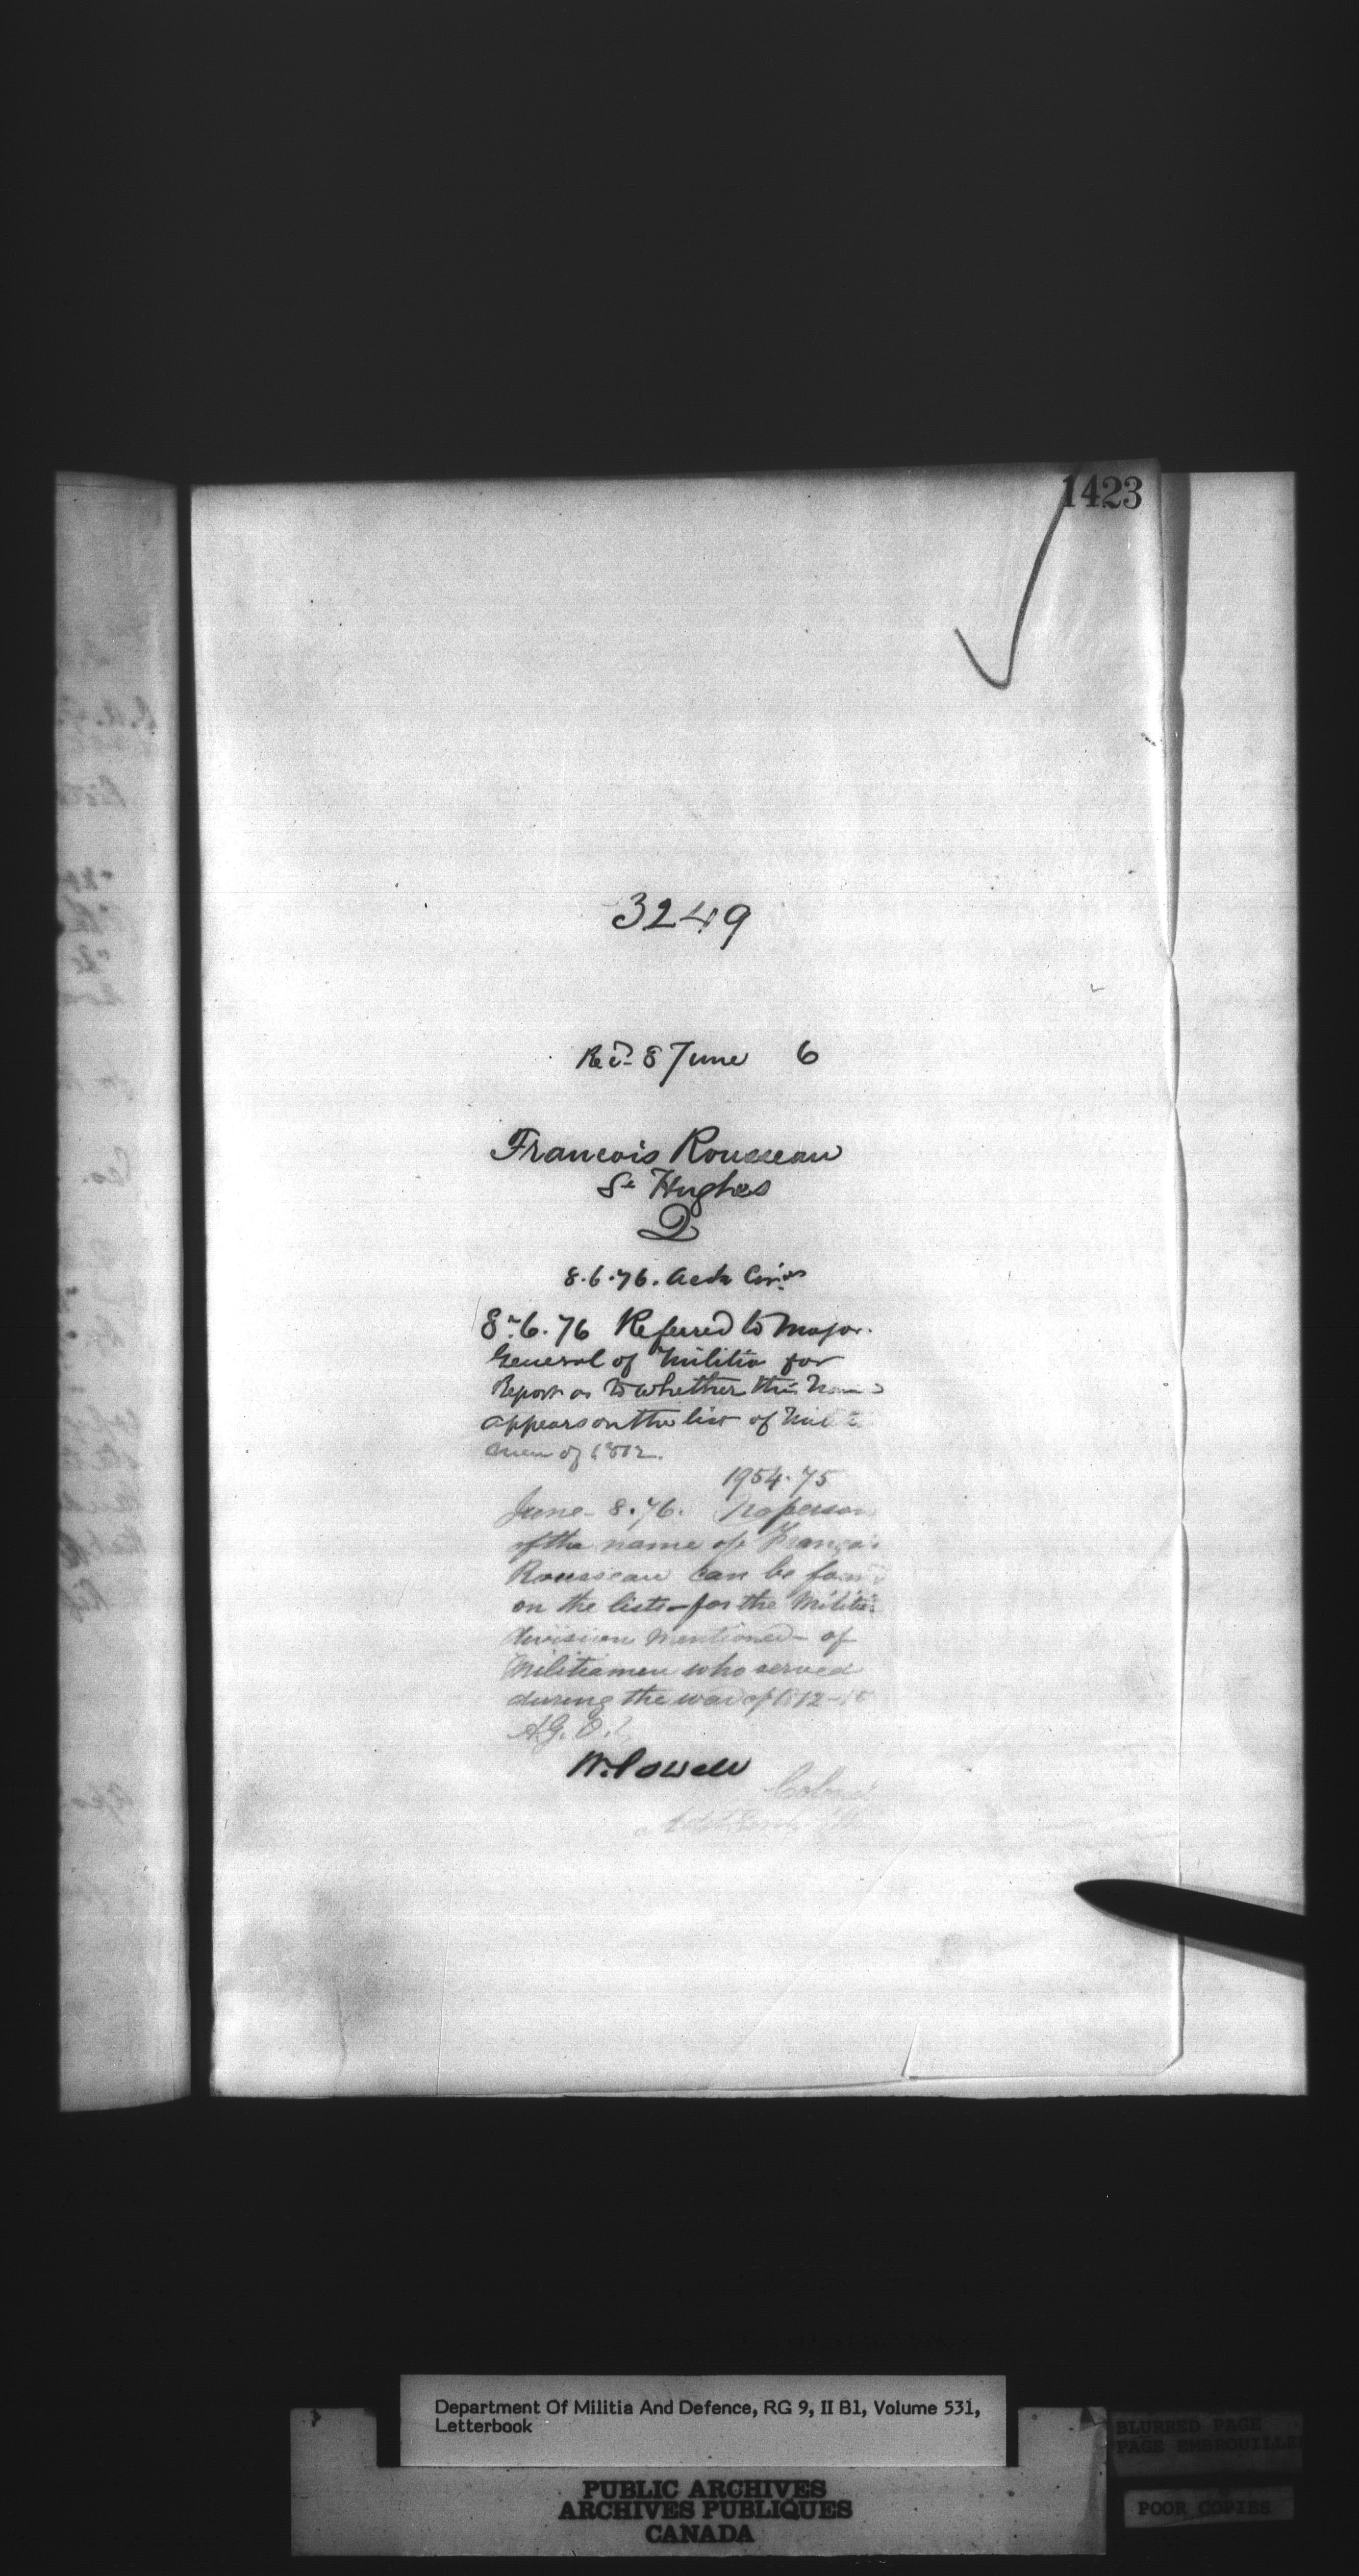 1423
3249
Rec'd 8 June 6
Francois Rousseau
St Hughes
Q
8.6.76. Ack
8.6.76 Referred to Major
General of Militia for
Report as to whether this
appears on the list of
men of 1812.
1954.75
June 8.76. No person
of the name of François
Rousseau can be found
on the lists - for the Militia
division mentioned - of
Militiamen who served
during the war of 1812-15
A.G.O.
W. Powell
Colonel
Department Of Militia And Defence, RG 9, II B1, Volume 531,
Letterbook
BLURRED PAGE
PAGE EMBROUILLEE
PUBLIC ARCHIVES
ARCHIVES PUBLIQUES
CANADA
POOR COPIES